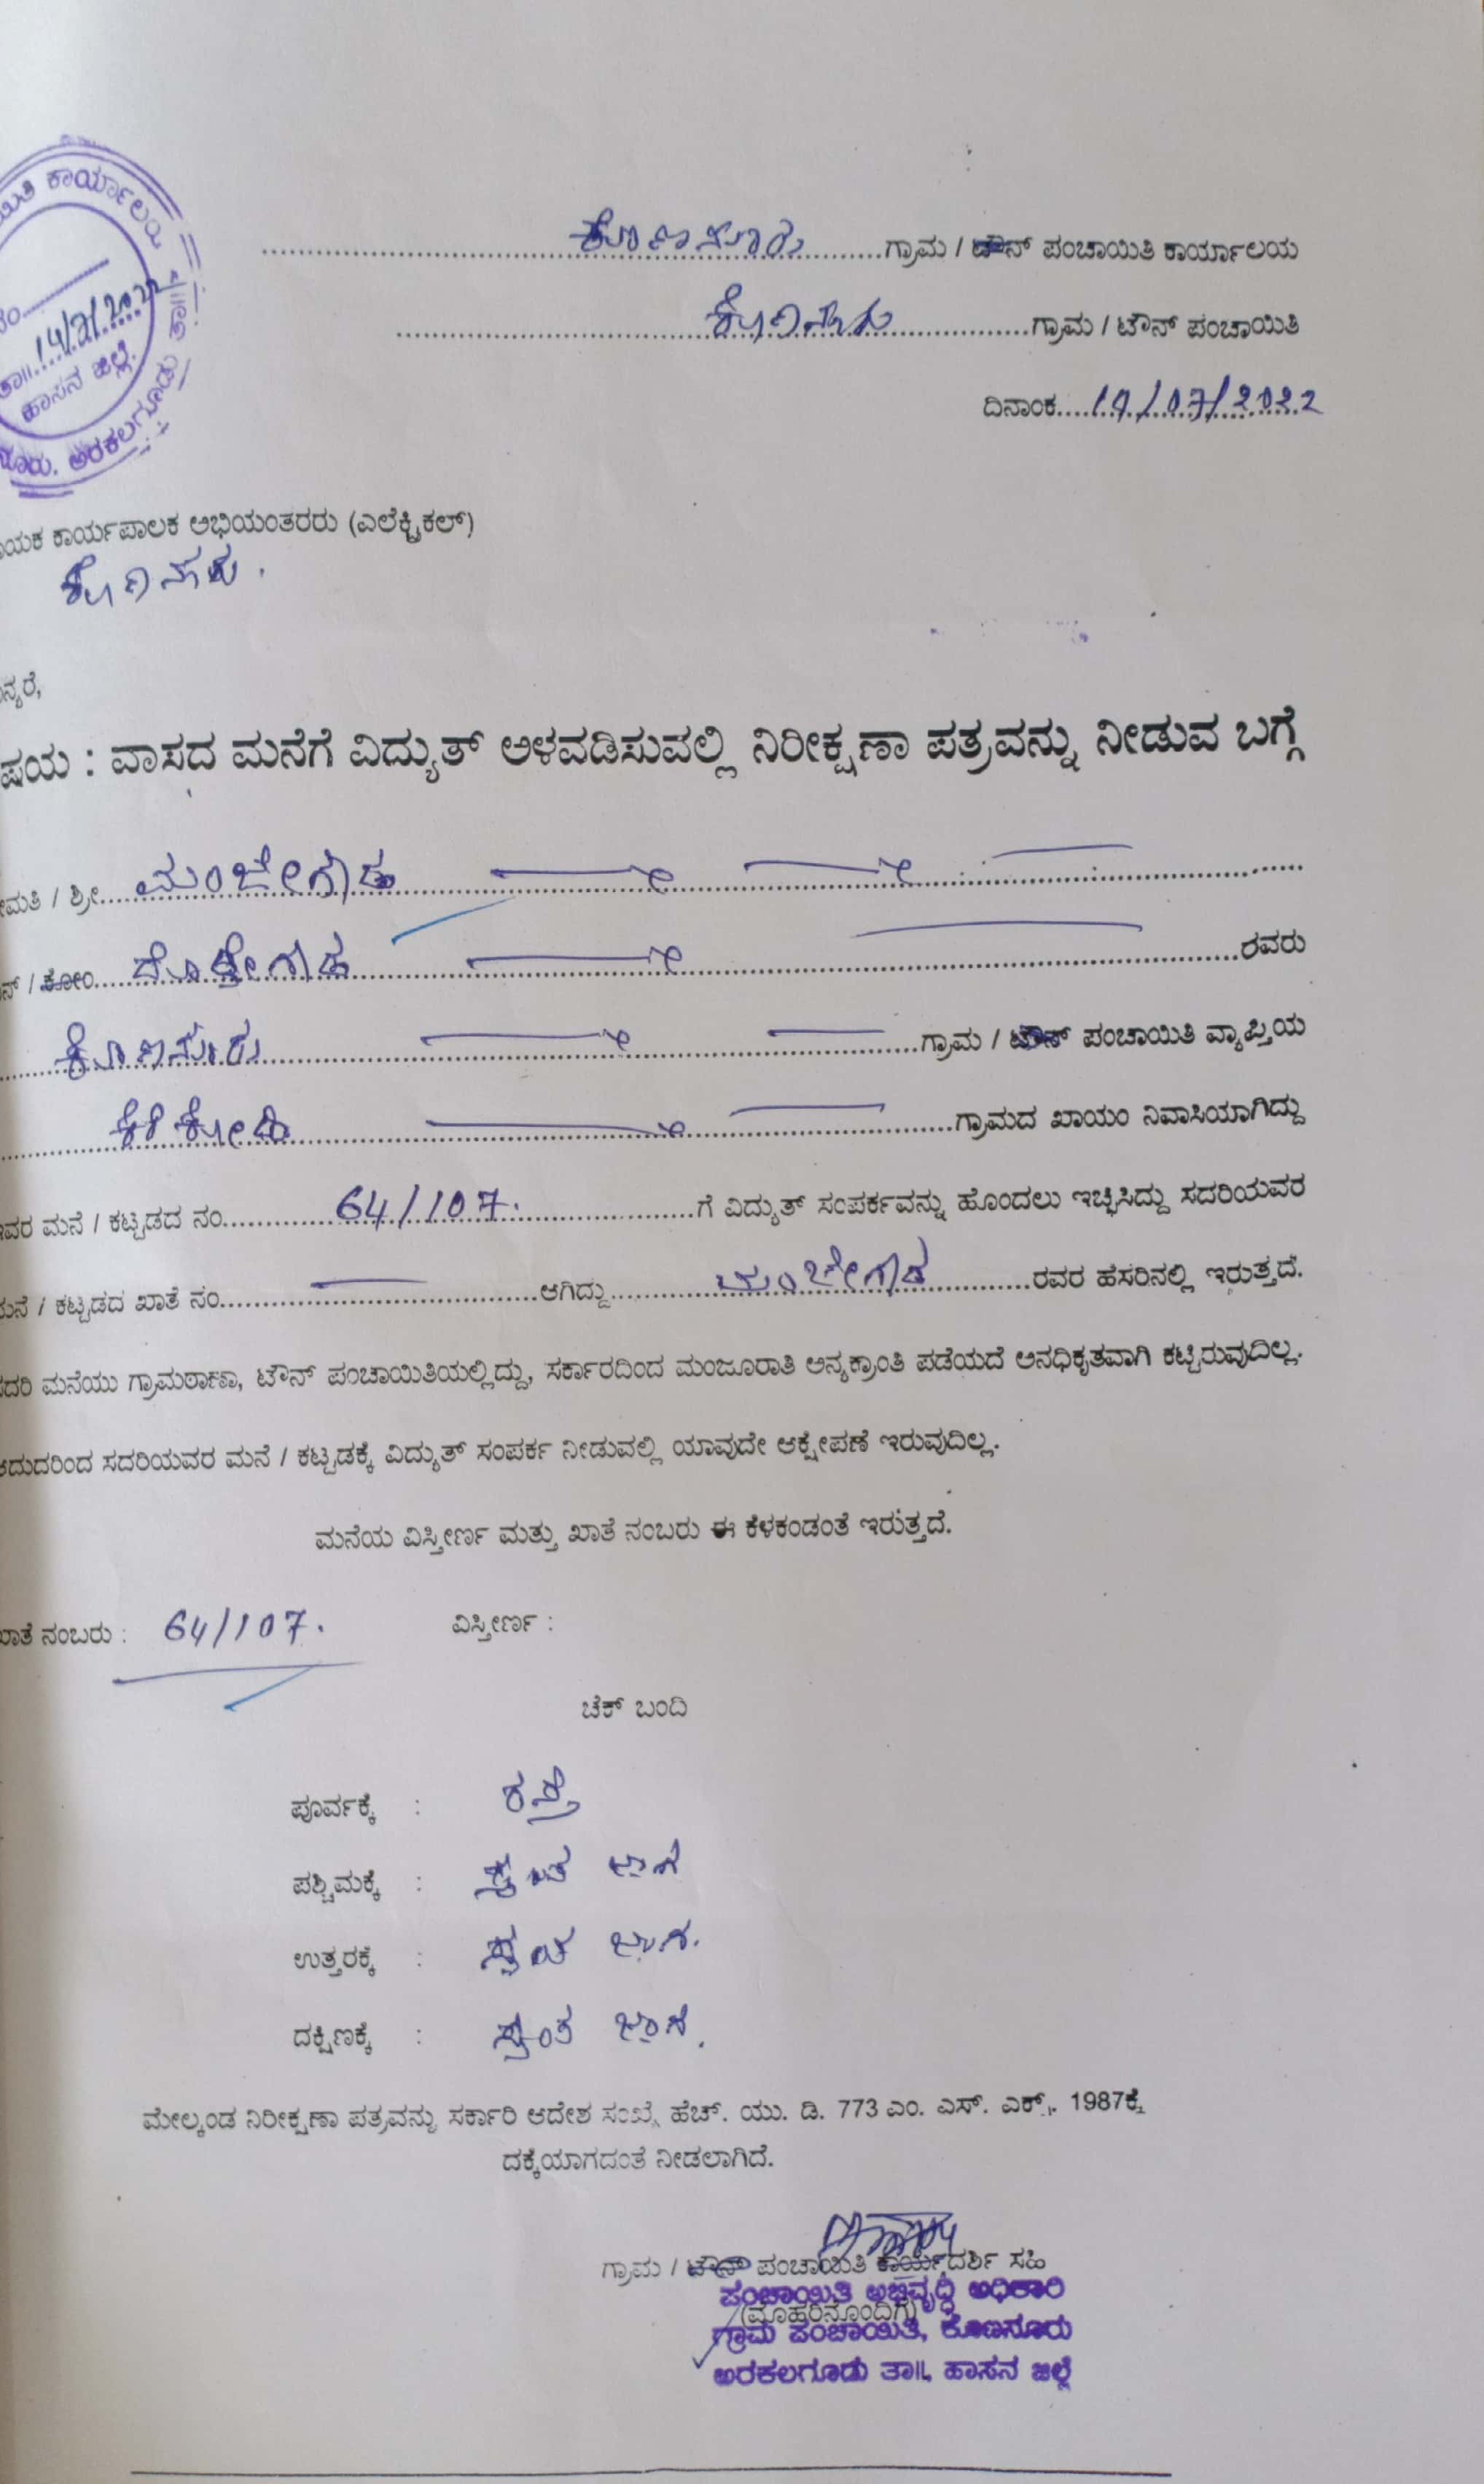 ಯಿತಿ ಕಾರ್ಯಾಲಯ
ತಾ॥ 14/7/2022
ಹಾಸನ ಜಿಲ್ಲೆ.
ಅರಕಲಗೂಡು ತಾ॥
ಕೊಣನೂರು ಗ್ರಾಮ / ಟೌನ್ ಪಂಚಾಯಿತಿ ಕಾರ್ಯಾಲಯ
ಕೊಣನೂರು ಗ್ರಾಮ / ಟೌನ್ ಪಂಚಾಯಿತಿ
ದಿನಾಂಕ 14/07/2022
ಯಕ ಕಾರ್ಯಪಾಲಕ ಅಭಿಯಂತರರು (ಎಲೆಕ್ಟ್ರಿಕಲ್)
ಕೊಣನೂರು.
ನ್ಯರೆ,
ಷಯ : ವಾಸದ ಮನೆಗೆ ವಿದ್ಯುತ್ ಅಳವಡಿಸುವಲ್ಲಿ ನಿರೀಕ್ಷಣಾ ಪತ್ರವನ್ನು ನೀಡುವ ಬಗ್ಗೆ
ಮತಿ / ಶ್ರೀ ಮಂಜೇಗೌಡ
ನ್ / ಕೋಂ ದೊಡ್ಡೇಗೌಡ ರವರು
ಕೊಣನೂರು ಗ್ರಾಮ / ಟೌನ್ ಪಂಚಾಯಿತಿ ವ್ಯಾಪ್ತಿಯ
ಕೆರೆಕೋಡಿ ಗ್ರಾಮದ ಖಾಯಂ ನಿವಾಸಿಯಾಗಿದ್ದು
ಇವರ ಮನೆ / ಕಟ್ಟಡದ ನಂ 64/107. ಗೆ ವಿದ್ಯುತ್ ಸಂಪರ್ಕವನ್ನು ಹೊಂದಲು ಇಚ್ಛಿಸಿದ್ದು ಸದರಿಯವರ
ಮನೆ / ಕಟ್ಟಡದ ಖಾತೆ ನಂ ಆಗಿದ್ದು ಮಂಜೇಗೌಡ ರವರ ಹೆಸರಿನಲ್ಲಿ ಇರುತ್ತದೆ.
ಸದರಿ ಮನೆಯು ಗ್ರಾಮಠಾಣಾ, ಟೌನ್ ಪಂಚಾಯಿತಿಯಲ್ಲಿದ್ದು, ಸರ್ಕಾರದಿಂದ ಮಂಜೂರಾತಿ ಅನ್ಯಕ್ರಾಂತಿ ಪಡೆಯದೆ ಅನಧಿಕೃತವಾಗಿ ಕಟ್ಟಿರುವುದಿಲ್ಲ.
ಆದುದರಿಂದ ಸದರಿಯವರ ಮನೆ / ಕಟ್ಟಡಕ್ಕೆ ವಿದ್ಯುತ್ ಸಂಪರ್ಕ ನೀಡುವಲ್ಲಿ ಯಾವುದೇ ಆಕ್ಷೇಪಣೆ ಇರುವುದಿಲ್ಲ.
ಮನೆಯ ವಿಸ್ತೀರ್ಣ ಮತ್ತು ಖಾತೆ ನಂಬರು ಈ ಕೆಳಕಂಡಂತೆ ಇರುತ್ತದೆ.
ಖಾತೆ ನಂಬರು : 64/107. ವಿಸ್ತೀರ್ಣ :
ಚೆಕ್ ಬಂದಿ
ಪೂರ್ವಕ್ಕೆ : ರಸ್ತೆ
ಪಶ್ಚಿಮಕ್ಕೆ : ಸ್ವಂತ ಜಾಗ
ಉತ್ತರಕ್ಕೆ : ಸ್ವಂತ ಜಾಗ.
ದಕ್ಷಿಣಕ್ಕೆ : ಸ್ವಂತ ಜಾಗ.
ಮೇಲ್ಕಂಡ ನಿರೀಕ್ಷಣಾ ಪತ್ರವನ್ನು ಸರ್ಕಾರಿ ಆದೇಶ ಸಂಖ್ಯೆ ಹೆಚ್. ಯು. ಡಿ. 773 ಎಂ. ಎಸ್. ಎಕ್ಸ್. 1987ಕ್ಕೆ
ದಕ್ಕೆಯಾಗದಂತೆ ನೀಡಲಾಗಿದೆ.
ಗ್ರಾಮ / ಟೌನ್ ಪಂಚಾಯಿತಿ ಕಾರ್ಯದರ್ಶಿ ಸಹಿ
ಪಂಚಾಯಿತಿ ಅಭಿವೃದ್ಧಿ ಅಧಿಕಾರಿ
(ಮೊಹರಿನೊಂದಿಗೆ)
ಗ್ರಾಮ ಪಂಚಾಯಿತಿ, ಕೊಣನೂರು
ಅರಕಲಗೂಡು ತಾ॥, ಹಾಸನ ಜಿಲ್ಲೆ